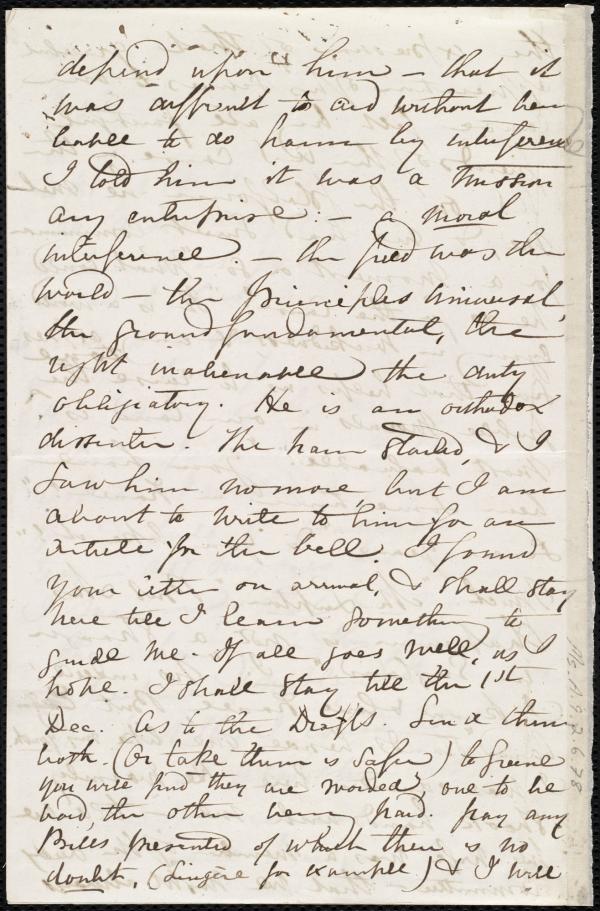 depend upon him – that it
was difficult to aid without being
liable to do harm by interference
I told him it was a mission
any enterprise: – a moral
interference. – the field was the
world – the principles universal,
the ground fundamental, the
right inalienable the duty
obligatory. He is an orthodox
dissenter. The train started, & I
saw him no more, but I am
about to write to him for an
article for the bell. I found
your letter on arrival, & shall stay
here till I learn something to
guide me. If all goes well, as I
hope. I shall stay till the 1st
Dec. As to the Drafts. Send them
both. (Or take them is safer) to Greene
you will find they are worded, one to be
void, the other being paid. pay any
Bills presented of which there is no
doubt, (Lingere for example) & I will
Ms. A.9.2.26.78